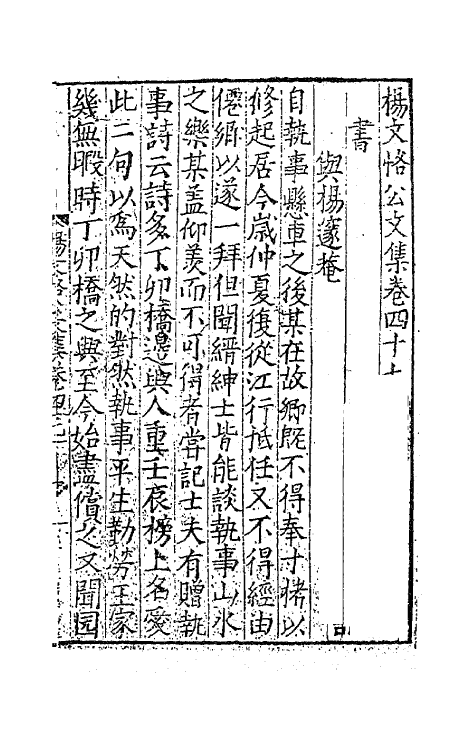 楊文恪公文集卷四十七
書
與楊邃菴
自執事懸車之後某在故鄉既不得奉寸楮以
修起居今歲仲夏後從江行抵任又不得經由
僊鄉以遂一拜但聞縉紳士皆能談執事山水
之樂某盖仰羡而不可得者嘗記士夫有贈執
事詩云詩多丁卯橋邊興人重壬辰榜上名愛
此二句以爲天然的對然執事平生勤勞王家
幾無暇時丁卯橋之興至今始盡償之又聞园